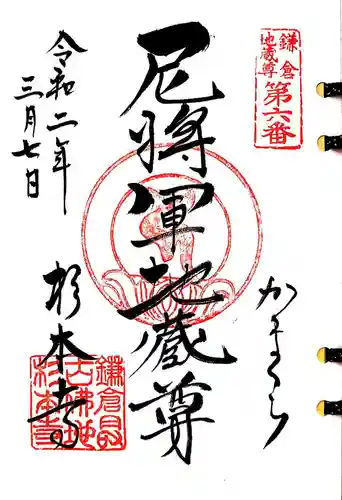 鎌倉
地蔵尊
第六番
かまくら
尼将軍地蔵尊
令和二年
三月七日
杉本寺
鎌倉最
古佛地
杉本寺